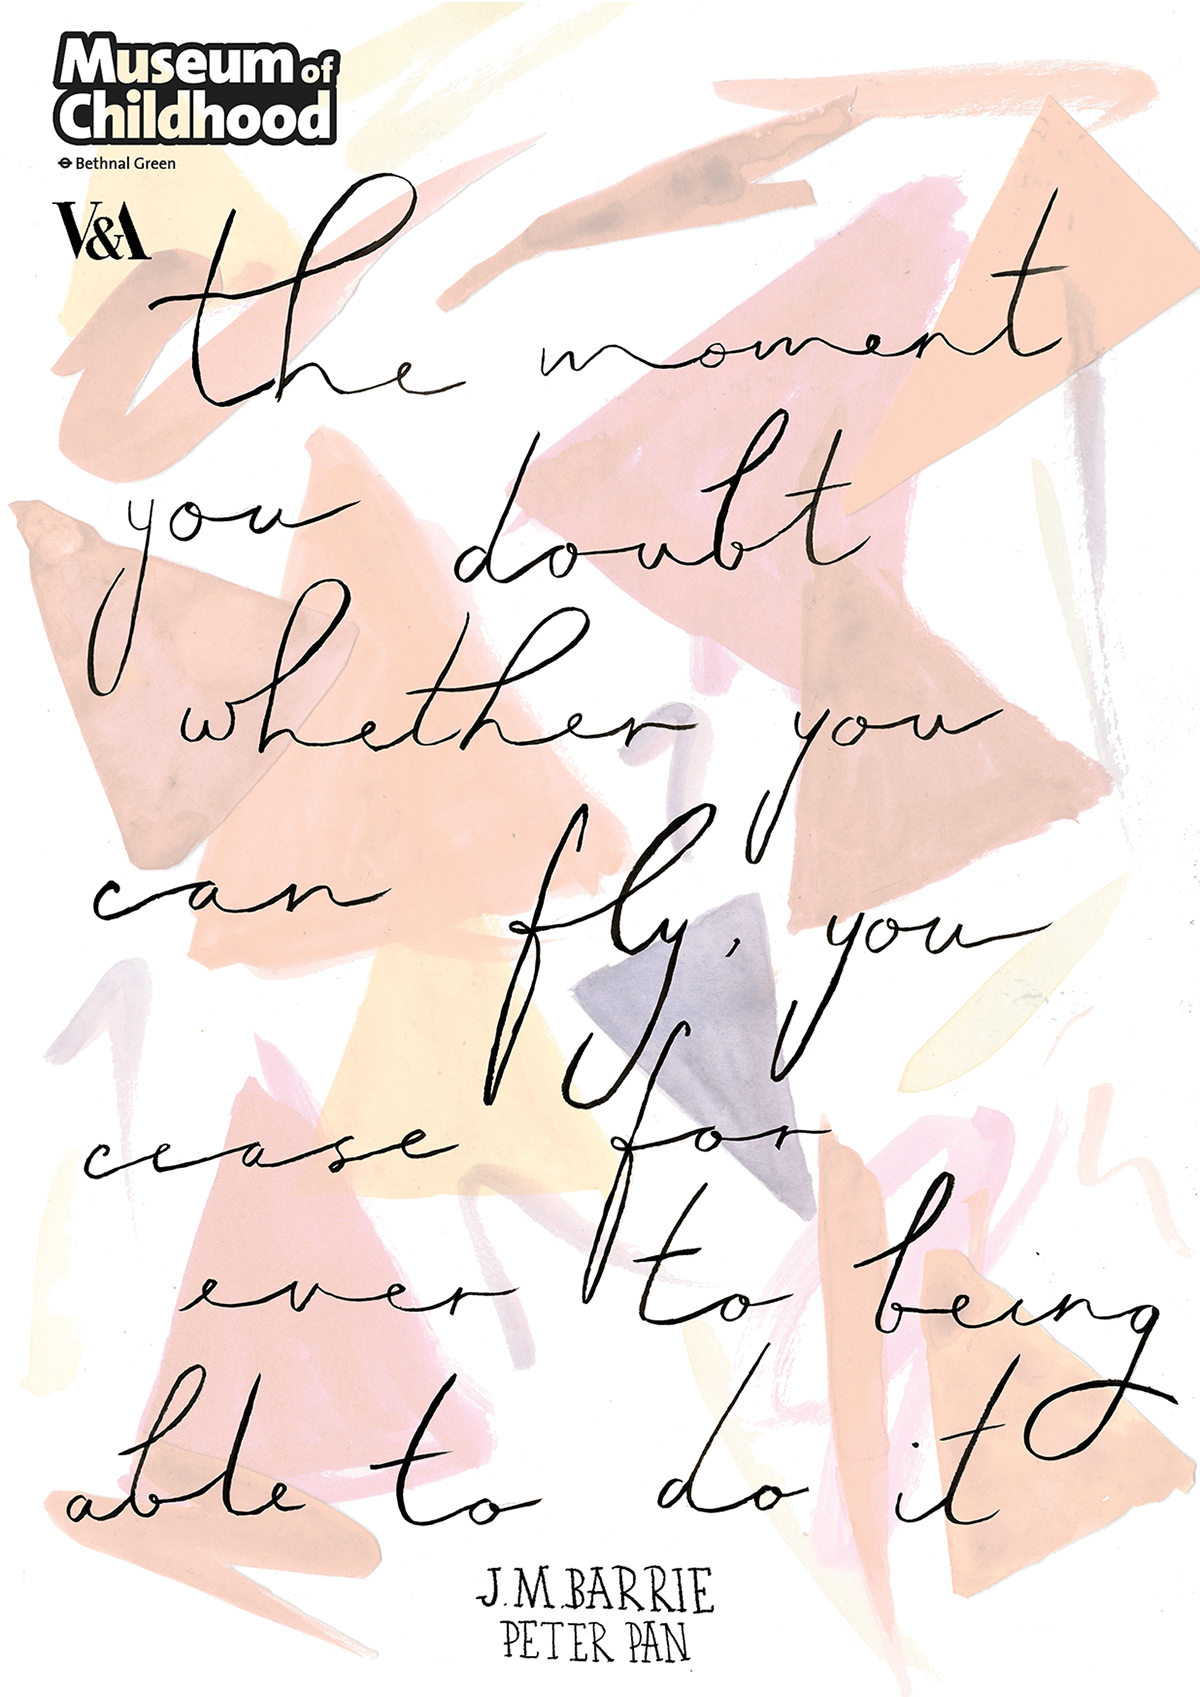 Museum of
Childhood
Bethnal Green
V&A
the moment
you doubt
whether you
can fly, you
cease for
ever to being
able to do it
J.M.BARRIE
PETER PAN